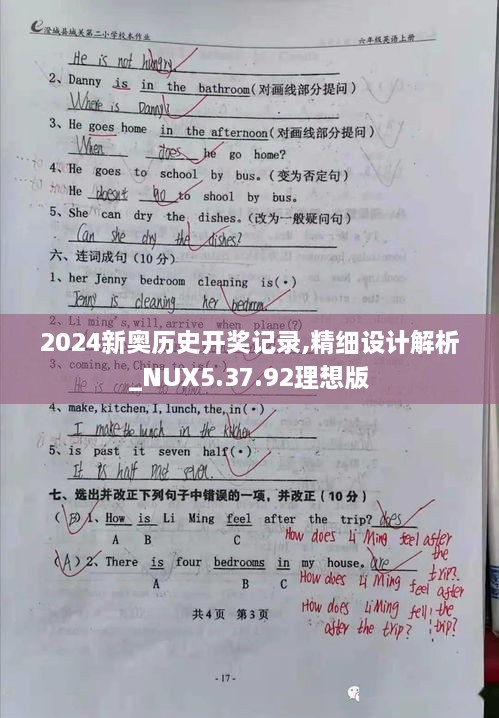 澄城县城关第二小学校本作业 六年级英语上册
He is not hungry.
2、Danny is in the bathroom(对画线部分提问)
Where is Danny?
3、He goes home in the afternoon(对画线部分提问)
When does he go home?
4、He goes to school by bus.(变为否定句)
He doesnt go to shool by bus.
5、She can dry the dishes.(改为一般疑问句)
Can she dry the dishes?
六、连词成句(10分)
1、her Jenny bedroom cleaning is(·)
Jenny is cleaning her bedroom.
2、Li ming's, will, arrive when plane(?)
2024新奥历史开奖记录,精细设计解析
_NUX5.37.92理想版
3、coming, he, China, to
4、make, kitchen, I, lunch, the, in(·)
I make the lunch in the kitchen
5、is past it seven half(·)
It is half past seven.
七、选出并改正下列句子中错误的一项,并改正(10分)
(B)1、How is Li Ming feel after the trip? does
A B C
How does Li Ming feel after the trip?
(A)2、There is four bedrooms in my house. are
A B C
How does Li Ming feel after the trip?
How does Li Ming fell after the trip?
共4页 第3页
-17-